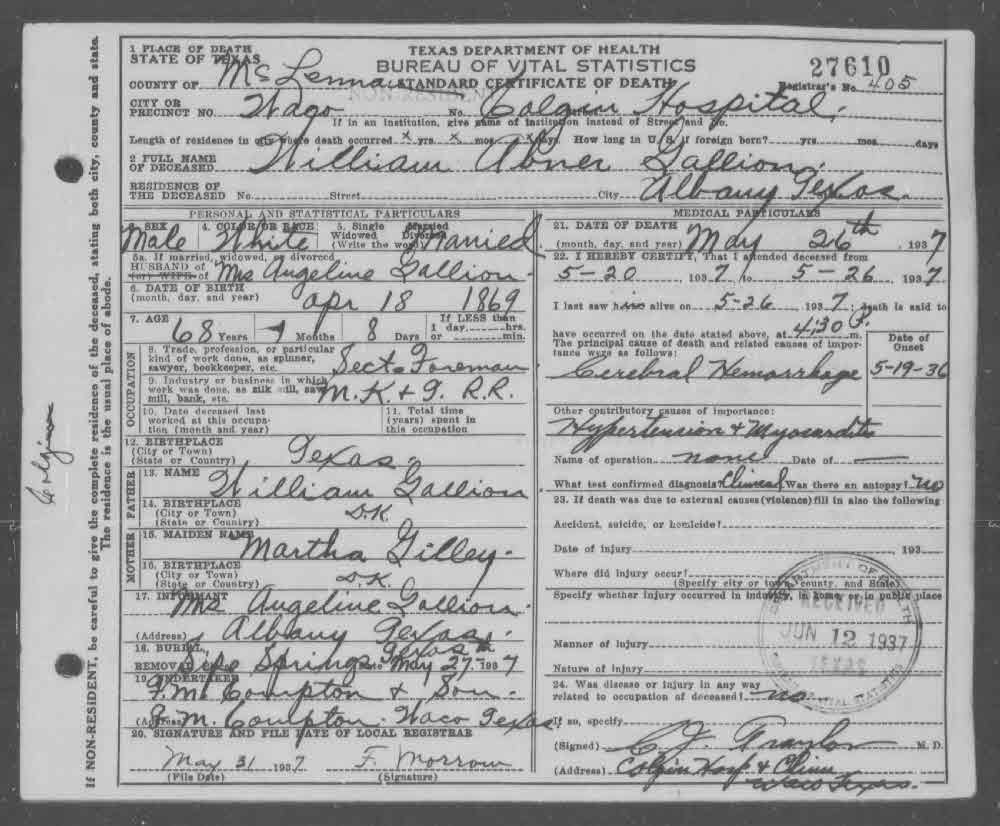 1 PLACE OF DEATH
STATE OF TEXAS
TEXAS DEPARTMENT OF HEALTH
BUREAU OF VITAL STATISTICS
STANDARD CERTIFICATE OF DEATH
27610
Registrar's No. 405
COUNTY OF McLennan
CITY OR
PRECINCT NO. Waco No. Colgin Hospital,
If in an institution, give name of institution instead of Street and No.
Length of residence in city where death occurred x yrs. x mos. days. How long in U. S. if foreign born? yrs. mos. days
2 FULL NAME
OF DECEASED William Abner Gallion
RESIDENCE OF
THE DECEASED No. Street City Albany Texas
PERSONAL AND STATISTICAL PARTICULARS
3. SEX Male 4. COLOR OR RACE White 5. Single Married Widowed Divorced (Write the word) Married
5a. If married, widowed, or divorced
HUSBAND of
(or) WIFE of Mrs Angeline Gallion
6. DATE OF BIRTH
(month, day, and year) Apr 18 1869
7. AGE 68 Years 1 Months 8 Days If LESS than 1 day, hrs. or min.
OCCUPATION
8. Trade, profession, or particular
kind of work done, as spinner,
sawyer, bookkeeper, etc. Sect. Foreman
9. Industry or business in which
work was done, as silk mill, saw
mill, bank, etc. M. K. & T. R.R.
10. Date deceased last
worked at this occupa-
tion (month and year)
11. Total time
(years) spent in
this occupation
12. BIRTHPLACE
(City or Town)
(State or Country) Texas
FATHER
13. NAME William Gallion
14. BIRTHPLACE
(City or Town)
(State or Country) D.K.
MOTHER
15. MAIDEN NAME Martha Gilley
16. BIRTHPLACE
(City or Town)
(State or Country) D.K.
17. INFORMANT Mrs Angeline Gallion
(Address) Albany Texas
18. BURIAL,
REMOVAL Springs Texas Date May 27th 1937
19. UNDERTAKER F. M. Compton & Son
(Address) F. M. Compton. Waco Texas
20. SIGNATURE AND FILE DATE OF LOCAL REGISTRAR
May 31 1937 F. Morrow
(File Date) (Signature)
MEDICAL PARTICULARS
21. DATE OF DEATH
(month, day, and year) May 26th, 1937
22. I HEREBY CERTIFY, That I attended deceased from
5-20 1937, to 5-26, 1937
I last saw him alive on 5-26, 1937; death is said to
have occurred on the date stated above, at 4:30 P. m.
The principal cause of death and related causes of impor-
tance were as follows:
Date of
Onset
Cerebral Hemorrhage 5-19-36
Other contributory causes of importance:
Hypertension & Myocarditis
Name of operation none Date of
What test confirmed diagnosis? Clinical Was there an autopsy? no
23. If death was due to external causes (violence) fill in also the following
Accident, suicide, or homicide?
Date of injury , 193
Where did injury occur?
(Specify city or town, county, and State)
Specify whether injury occurred in industry, in home, or in public place
Manner of injury
Nature of injury
24. Was disease or injury in any way
related to occupation of deceased? no
If so, specify
(Signed) C. J. M. D.
(Address) Colgin Hosp & Clinic
Waco Texas.
DEPARTMENT OF HEALTH
RECEIVED
JUN 12 1937
TEXAS
VITAL STATISTICS
If NON-RESIDENT, be careful to give the complete residence of the deceased, stating both city, county and state.
The residence is the usual place of abode.